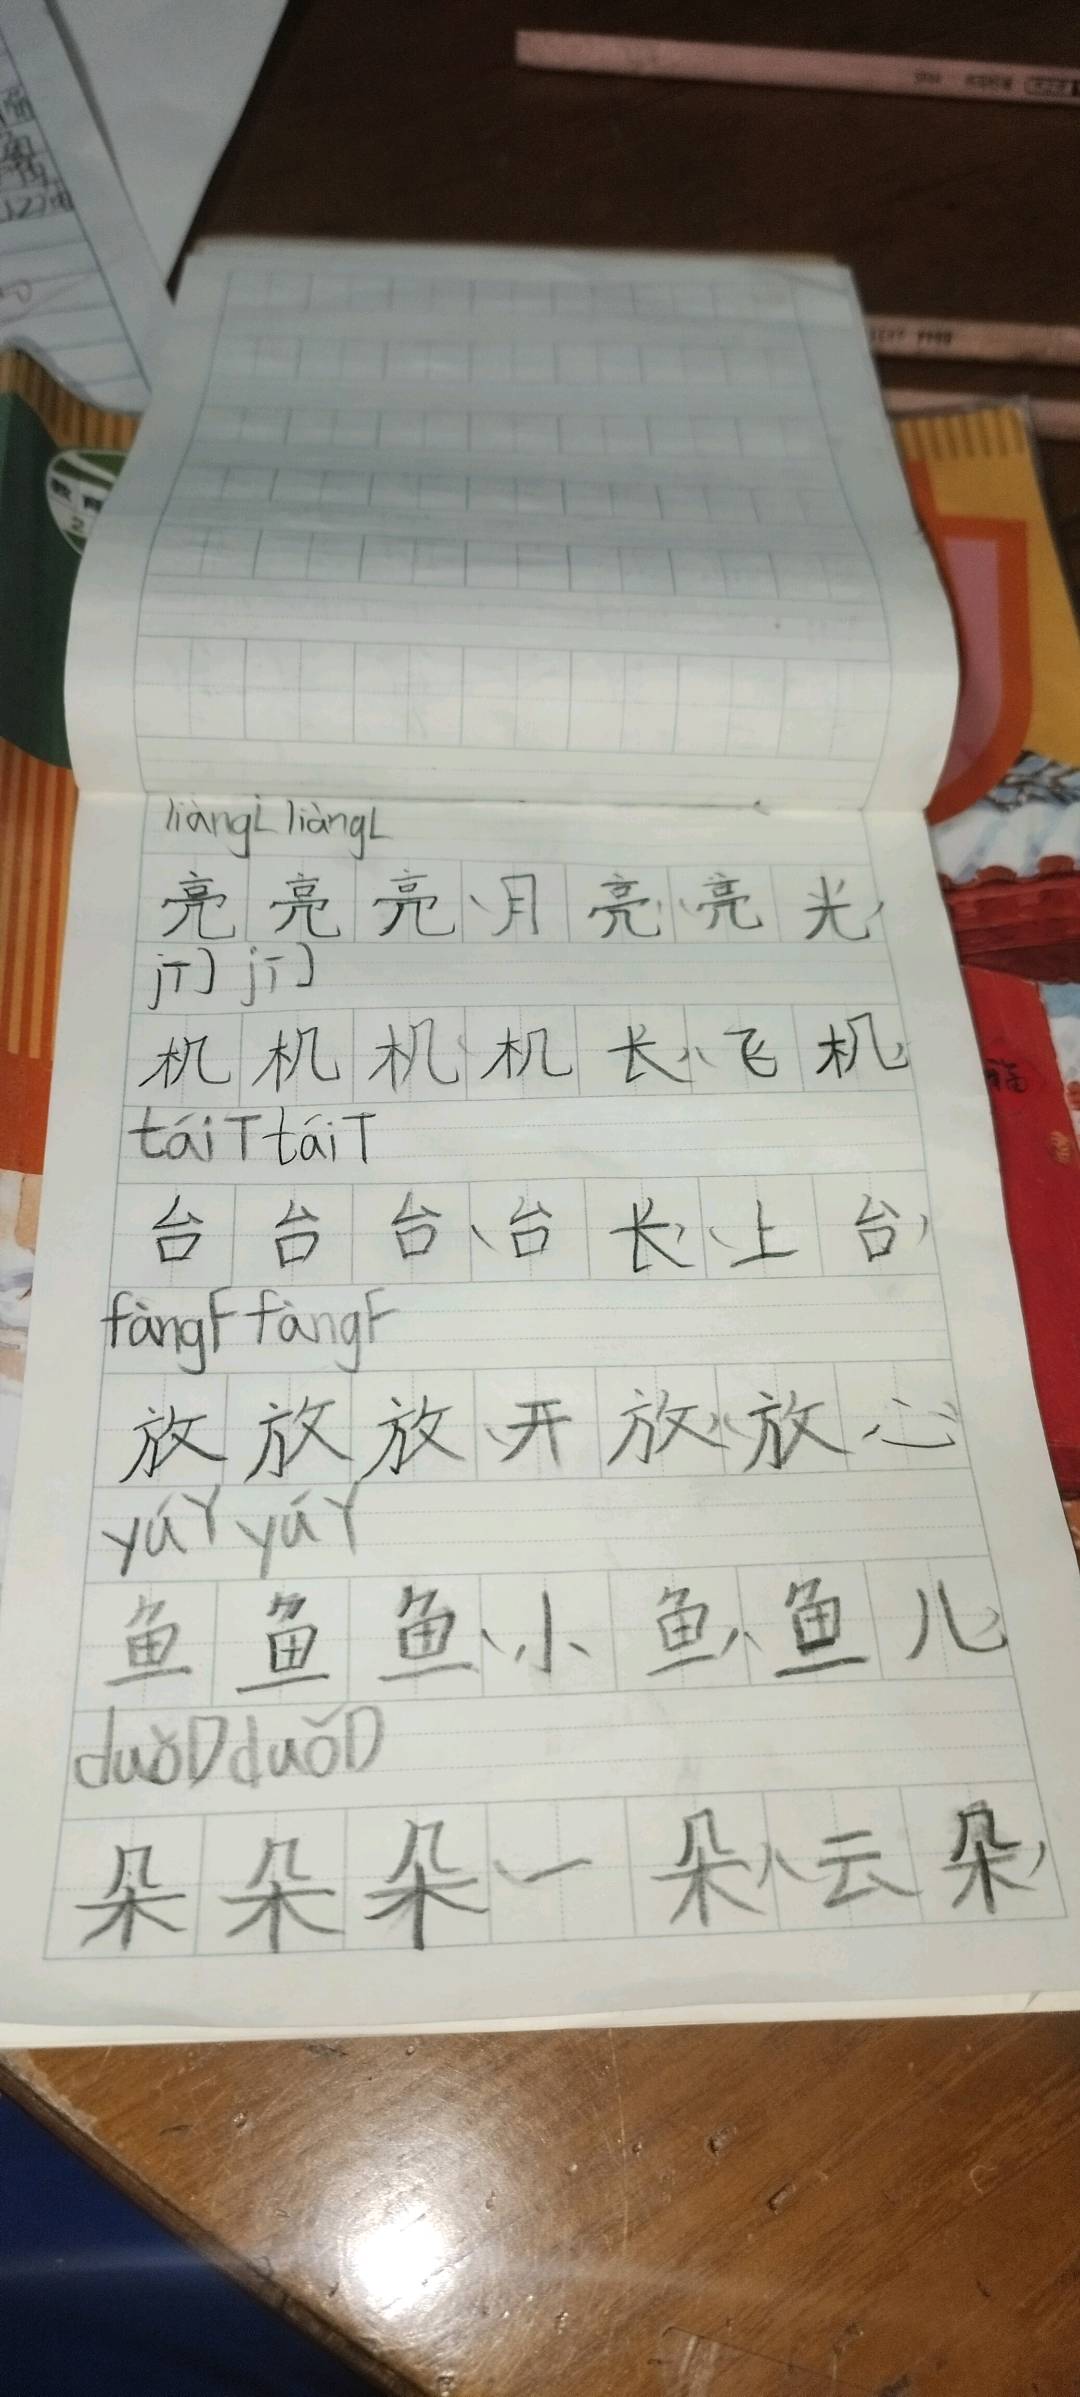 liàngL liàngL
亮 亮 亮（月 亮）（亮 光）
jīJ jīJ
机 机 机（机 长）（飞 机）
táiT táiT
台 台 台（台 长）（上 台）
fàngF fàngF
放 放 放（开 放）（放 心）
yúY yúY
鱼 鱼 鱼（小 鱼）（鱼 儿）
duǒD duǒD
朵 朵 朵（一 朵）（云 朵）
教育
2
福